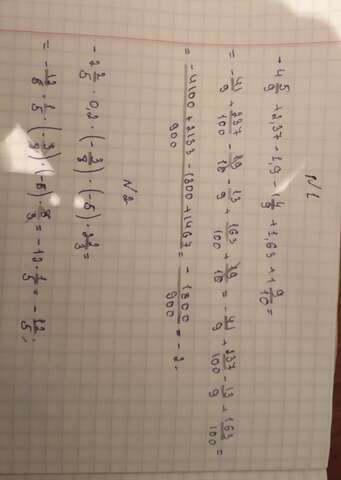 N1
-4 5/9 + 2,37 - 1,9 - 1 4/9 + 1,63 + 1 9/10 =
= -41/9 + 237/100 - 19/10 - 13/9 + 163/100 + 19/10 = -41/9 + 237/100 - 13/9 + 163/100 =
= -4100+2133-1300+1467/900 = -1800/900 = -2.
N2
-2 2/5 · 0,2 · (-3/8) · (-5) · 2 2/3 =
= -12/5 · 1/5 · (-3/8) · (-5) · 8/3 = -12 · 1/5 = -12/5;